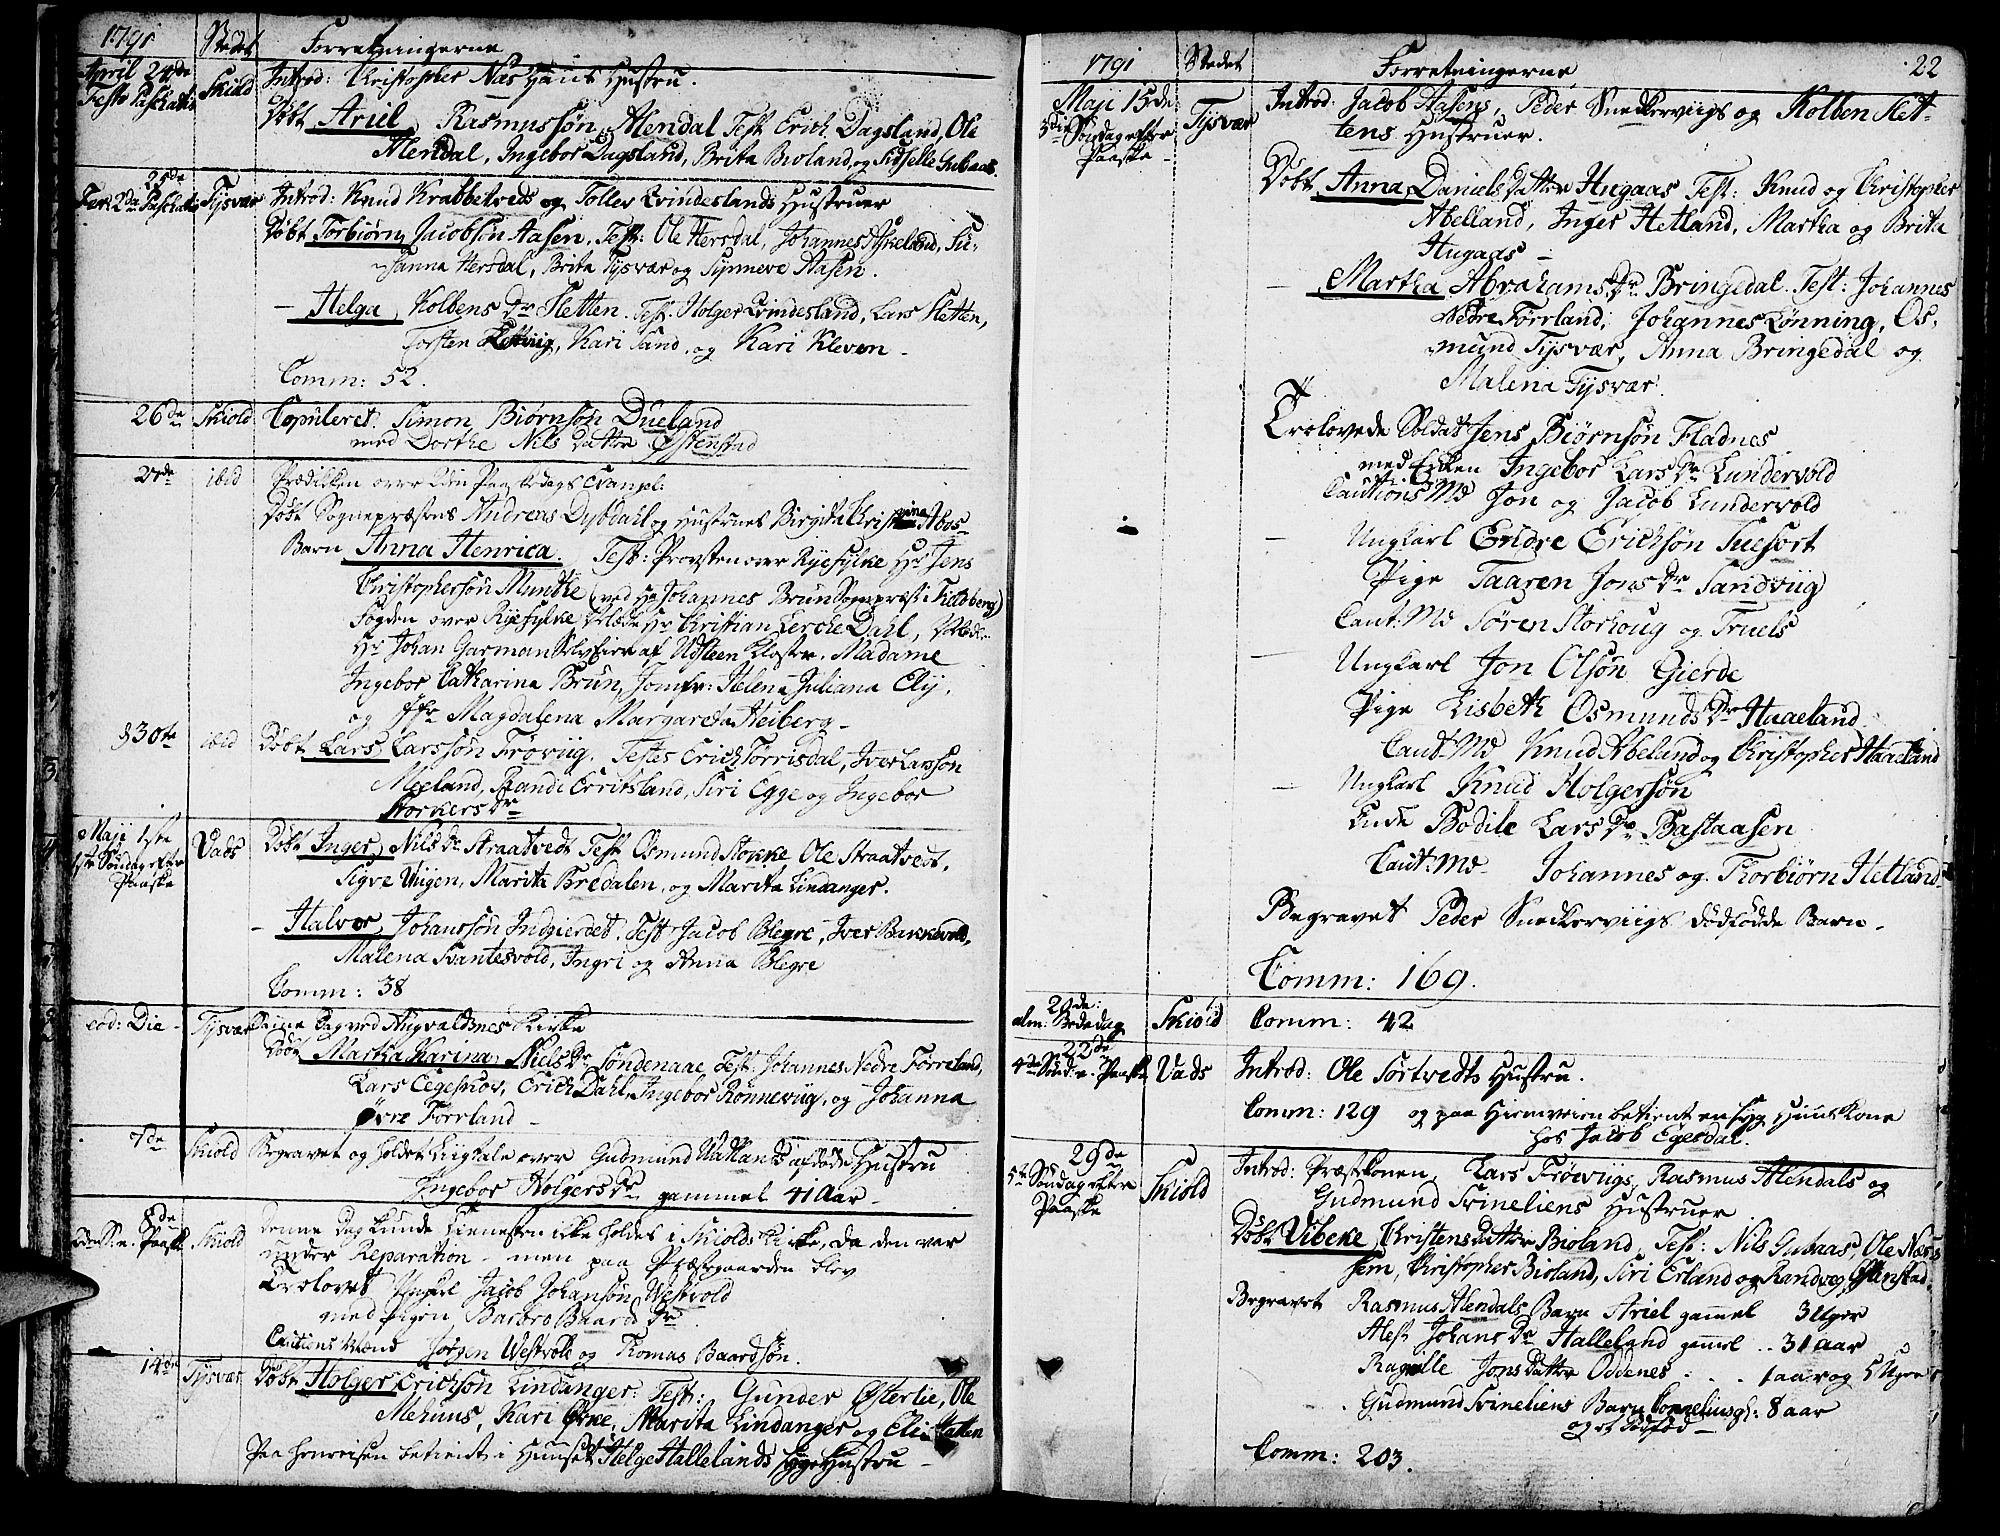 1791 Stedet Forretningerne
April 24de Skiold Introd: Christopher Næs Hans Hustru.
Festo Paschatis Døbt Ariel, Rasmussøn Alendal Test: Erich Dagsland, Ole
Alendal, Ingebor Dagsland, Brita Bioland, og Sidselle Gubaas.
25de
Fer: 2da Paschatis Tysvær Introd: Knud Krabbetveds og Tollev Qvindeslands Hustruer
Døbt Torbiørn, Jacobsøn Aasen, Test: Ole Hersdal, Johannes Askeland, Su-
sanna Hersdal, Brita Tysvær og Synneve Aasen.
- Helga, Kolbens Dr Sletten. Test: Holger Qvindesland, Lars Sletten,
Torsten, Kari Sand, og Kari Kleven -
Comm: 52.
26de Skiold Copuleret. Simon Biørnsøn Dueland
med Dorthe Nils Datter Østenstad
27de ibid Prædiken over 2den Paaskedags Evangel:
Døbt Sognepræstens Andreas Dybdahl og Hustrues Birgita Christina Abos
Barn Anna Henrica. Test: Provsten over Ryefylke Hr Jens
Christophersøn Munthe (ved Hr Johannes Brun Sognepræst i Fieldberg)
Fogden over Ryefylke Christian Lerche Dahl,
Hr Johan Garman Selveier af Udsteen Kloster, Madame
Ingebor Catharina Brun, Jomfr: Helena Juliana Ely,
og Jfr Magdalena Margareta Heiberg -
30te ibid Døbt Lars, Larssøn Frøviig, Testes Erich Torrisdal, Iver Larssøn
Meeland, Randi Erritsland, Siri Egge og Ingebor
Storkers Dr
Maji 1ste Vads Døbt Inger, Nils Dr Straatvedt Test Osmund Stokke, Ole Straatvedt,
1ste Søndag efter Paaske Sigve Viigen, Marita Bredalen, og Marita Lindanger.
- Halvor, Johanssøn Indgierdet, Test Jacob Blegre, Iver Barkevold,
Malena Svantesvold, Ingri og Anna Blegre
Comm: 38
eod: Die - Tysvær Denne Dag ved Augvaldsnes Kirke
Døbt Martha Karina, Niels Dr Søndenaae, Test: Johannes Nedre Førreland,
Lars, Erich Dahl, Ingebor Rønneviig, og Johanna
Øvre Førrland -
7de Skiold Begravet og holdet Liigtale over Gudmund Vatlands afdøde Hustru
Ingebor Holgers Dr gammel 41 Aar -
8de
2den S: e: Paaske Skiold Denne Dag kunde Tienesten ikke holdes i Skiolds Kirke, da den var
under Reparation - men paa Præstegaarden blev
Trolovet Ungkl Jacob Johansøn Westvold
med Pigen Barbro Baards Dr.
Cautions Mænd Jørgen Westvold og Thomas Baardsøn.
14de Tysvær Døbt Holger, Erichsøn Lindanger: Test: Gunder Østerlie, Ole
Mehuus, Kari Ørke, Marita Lindanger og Eli Hatten
Paa henreisen betient i Huuset Helge Hallelands syge Hustru -
1791 Stedet Forretningerne 22
Maji 15de Tysvær Introd: Jacob Aasens, Peder Snedkerviigs og Kolben Slet-
Søndag efter Paaske - tens Hustruer.
Døbt Anna, Daniels Datter Hugaas Test: Knud og Christopher
Abelland, Inger Hetland, Martha og Brita
Hugaas -
- Martha Abrahams Dr Bringedal. Test: Johannes
Nedre Førrland, Johannes Lønning, Os-
mund Tysvær, Anna Bringedal og
Malena Tysvær.
Trolovede Soldat Jens Biørnsøn Fladnes
med Enken Ingebor Lars Dr Lundervold
Cautions Md Jon og Jacob Lundervold
- Ungkarl Endre Erichsøn Tuesort
Pige Taaren Jons Dr Sandviig
Caut: Md Søren Storhoug og Truels
- Ungkarl Jon Olsøn Gierde
Pige Lisbeth Osmunds Dr Haaeland
Caut: Md Knud Abeland og Christopher Haaeland
- Ungkarl Knud Holgersøn
Enke Bodile Lars Dr Bastaasen
Caut: Md Johannes og Thorbiørn Hetland
Begravet Peder Snedkerviigs dødfødde Barn -
Comm: 169.
20de:
alm: Bededag Skiold Comm: 42
22de
4de Sønd: e. Paaske Vads Introd: Ole Sortvedts Hustru.
Comm: 129 og paa Hiemveien betient en syg Huuskone
hos Jacob Egesdal.
29de
5te Søndag efter Paaske Skiold Introd: Præstekonen, Lars Frøviigs, Rasmus Alendals og
Gudmund Svineliens Hustruer
Døbt Vibeke, Christens Datter Bioland, Test: Nils Gubaas, Ole Næs
hem, Christopher Bioland, Siri Erland og Randveg Østenstad.
Begravet Rasmus Alendals Barn Ariel gamel 3 Uger
Johans Dr Halleland gamel .. 31 Aar
Jons Datter Oddenes . . . 1 aar og 5 Uger
Gudmund Svineliens Barn Cornelius gl: 8 aar
og et Dødfød -
Comm: 203.